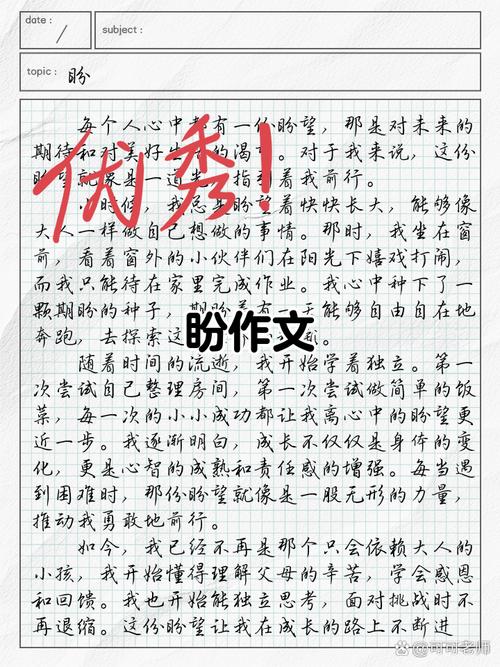 date:
subject:
topic: 盼
每个人心中都有一份盼望，那是对未来的
期待和对美好生活的渴望。对于我来说，这份
盼望就像是一道光，指引着我前行。
小时候，我总是盼望着快快长大，能够像
大人一样做自己想做的事情。那时，我坐在窗
前，看着窗外的小伙伴们在阳光下嬉戏打闹，
而我只能待在家里完成作业。我心中种下了一
颗期盼的种子，期盼着有一天能够自由自在地
奔跑，去探索这
随着时间的流逝，我开始学着独立。第一
次尝试自己整理房间，第一次尝试做简单的饭
菜，每一次的小小成功都让我离心中的盼望更
近一步。我逐渐明白，成长不仅仅是身体的变
化，更是心智的成熟和责任感的增强。每当遇
到困难时，那份盼望就像是一股无形的力量，
推动我勇敢地前行。
如今，我已经不再是那个只会依赖大人的
小孩，我开始懂得理解父母的辛苦，学会感恩
和回馈。我也开始能独立思考，面对挑战时不
再退缩。这份盼望让我在成长的路上不断进
优秀!
盼作文
@可可老师